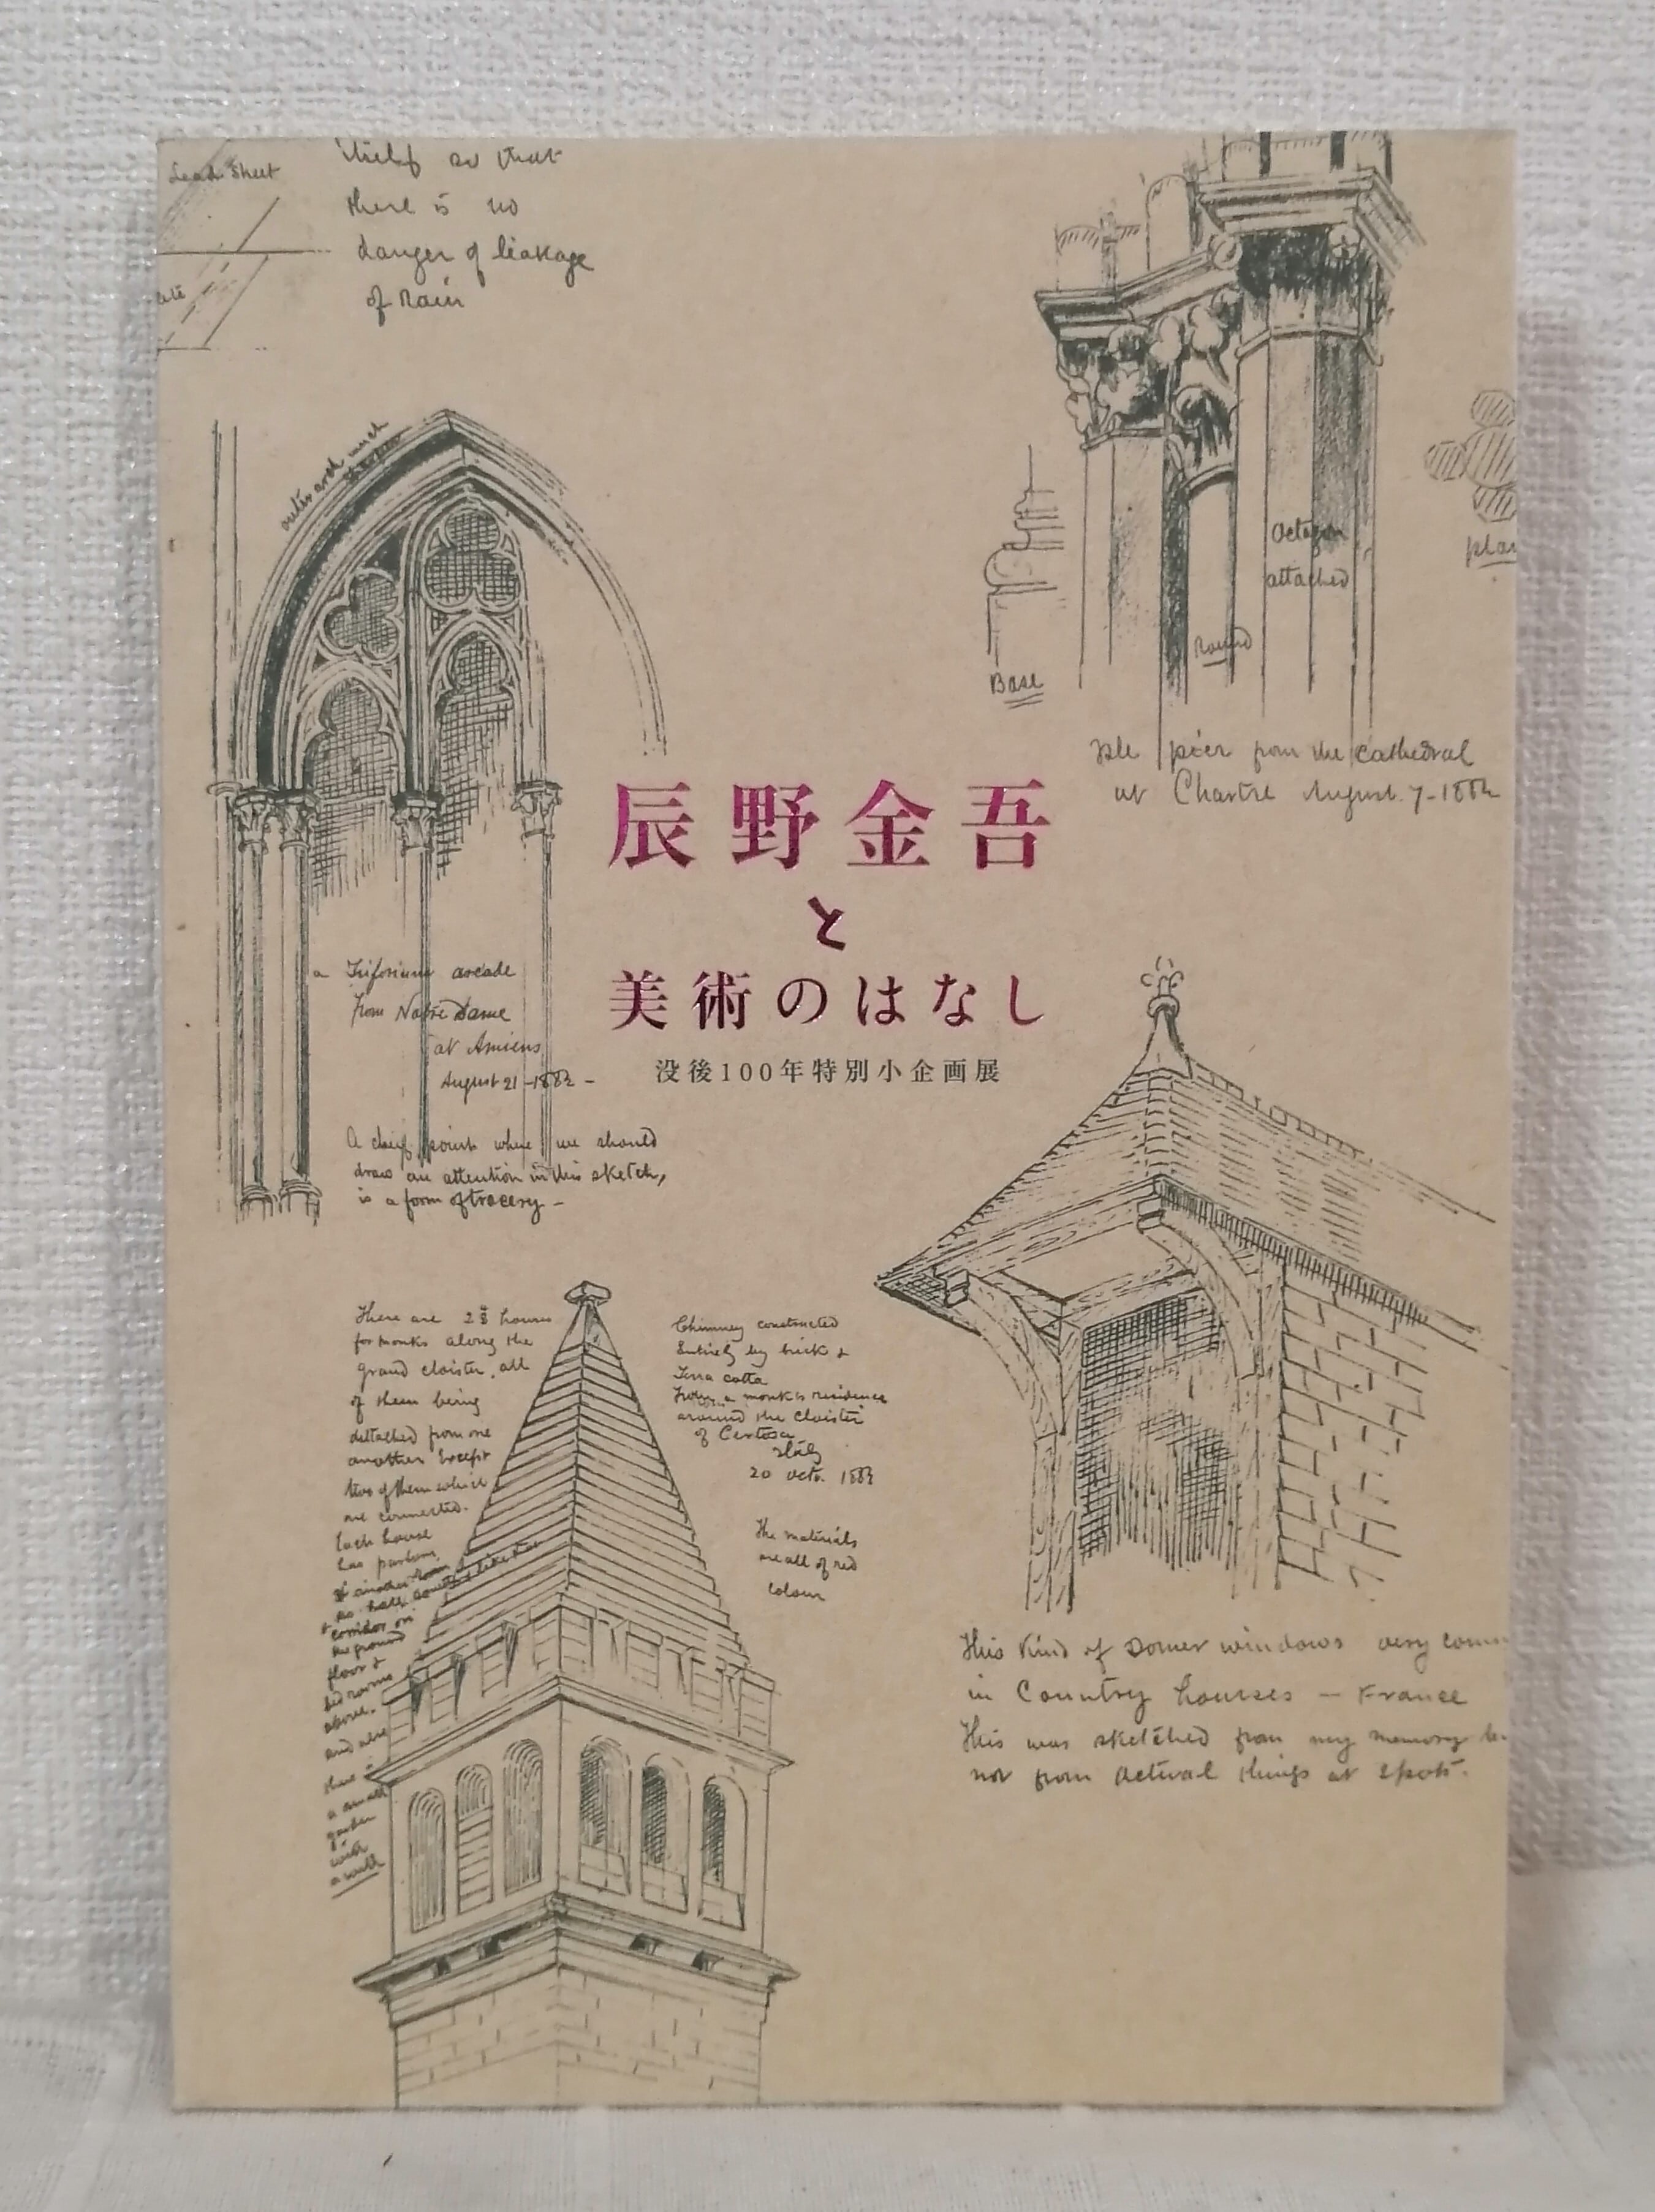 Lead Sheet
itself so that
there is no
danger of leakage
of Rain
outer arch much
sharper
Octagon
attached
Round
Base
plan
Isle pier from the cathedral
at Chartre August 7-1882
辰野金吾
と
美術のはなし
没後100年特別小企画展
a Triforium arcade
from Notre Dame
at Amiens
August 21-1882-
A chief point where we should
draw an attention in this sketch,
is a form of tracery-
There are 23 houses
for monks along the
grand cloister, all
of them being
dettached from one
another Except
two of them which
are connected.
Each house
has parlour,
& another room
corridor on
the ground
floor &
bed rooms
above.
and also
there is
a small
garden
with
a well
Chimney constructed
Entirely by brick &
Terra cotta
From a monk's residence
around the cloister
of Certosa
Italy
20 octr. 1883
The materials
are all of red
colour
This kind of Domer windows very com
in Country houses - France
This was sketched from my memory
not from actual things at spot.